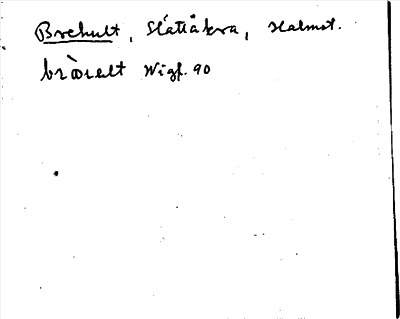 Brehult, Slättåkra, Halmst.
Wigf. 90